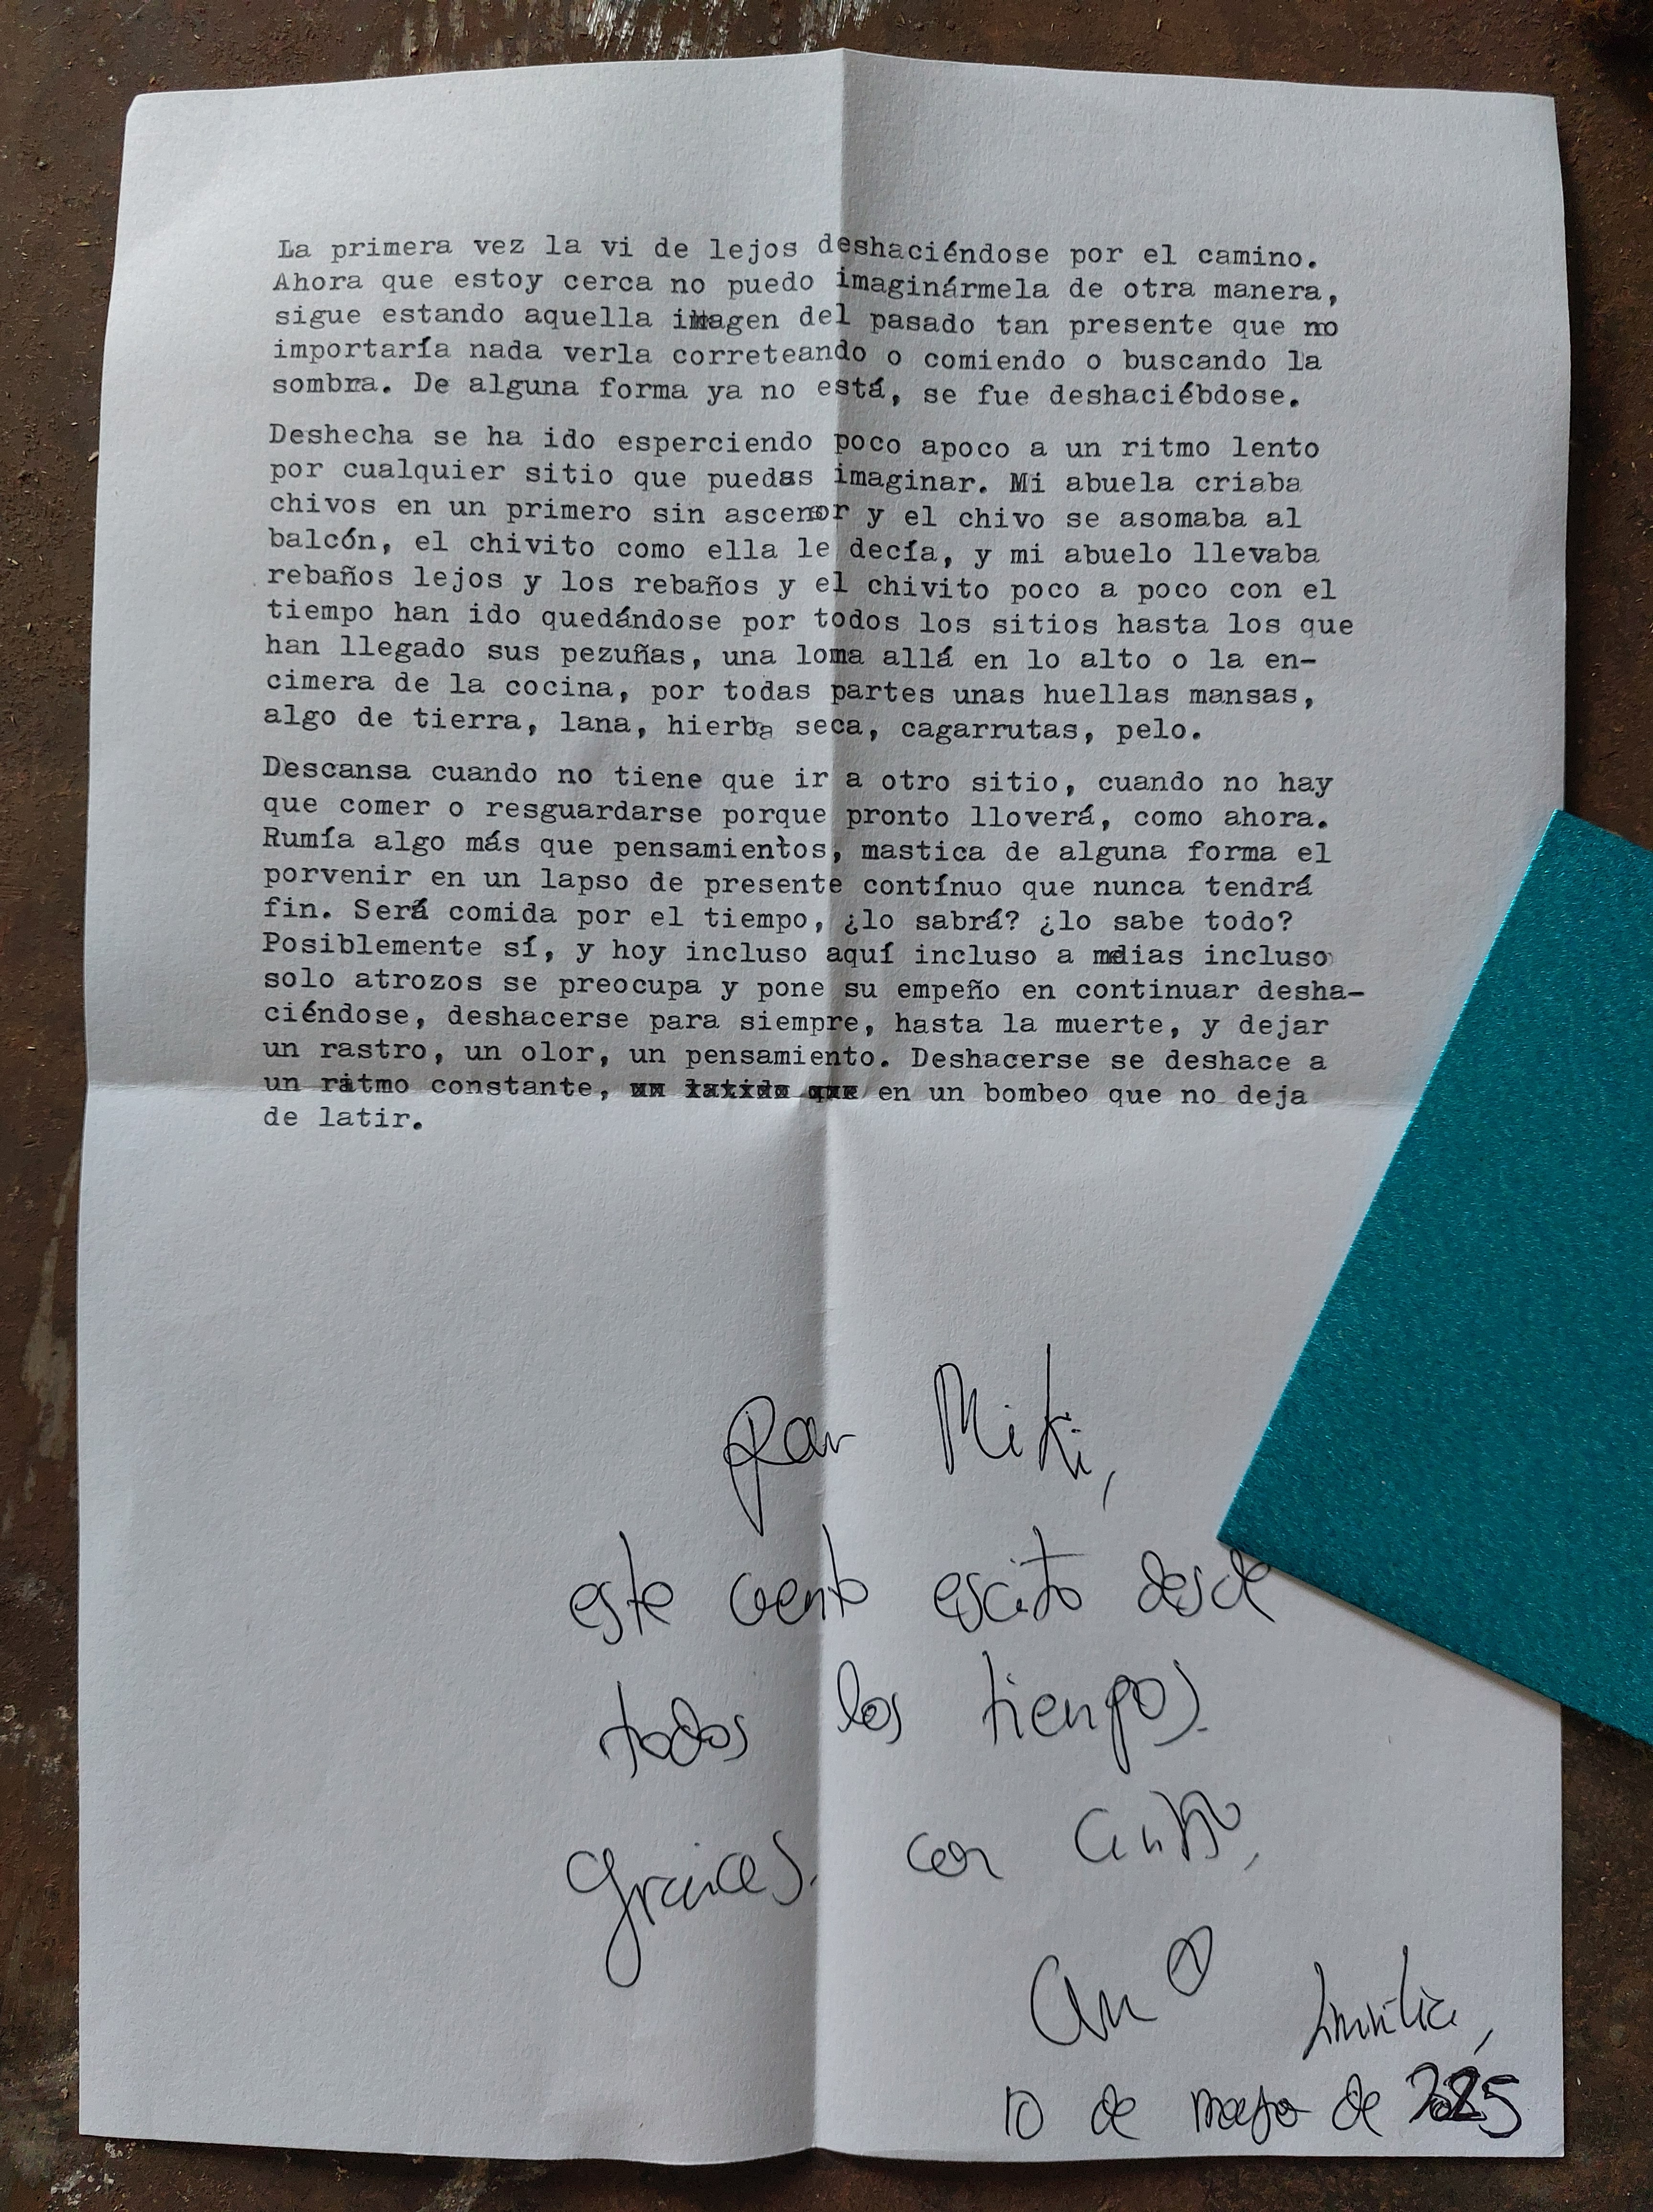 La primera vez la vi de lejos deshaciéndose por el camino.
Ahora que estoy cerca no puedo imaginármela de otra manera,
sigue estando aquella imagen del pasado tan presente que no
importaría nada verla correteando o comiendo o buscando la
sombra. De alguna forma ya no está, se fue deshaciébdose.
Deshecha se ha ido esperciendo poco apoco a un ritmo lento
por cualquier sitio que puedas imaginar. Mi abuela criaba
chivos en un primero sin ascensor y el chivo se asomaba al
balcón, el chivito como ella le decía, y mi abuelo llevaba
rebaños lejos y los rebaños y el chivito poco a poco con el
tiempo han ido quedándose por todos los sitios hasta los que
han llegado sus pezuñas, una loma allá en lo alto o la en-
cimera de la cocina, por todas partes unas huellas mansas,
algo de tierra, lana, hierba seca, cagarrutas, pelo.
Descansa cuando no tiene que ir a otro sitio, cuando no hay
que comer o resguardarse porque pronto lloverá, como ahora.
Rumía algo más que pensamientos, mastica de alguna forma el
porvenir en un lapso de presente contínuo que nunca tendrá
fin. Será comida por el tiempo, ¿lo sabrá? ¿lo sabe todo?
Posiblemente sí, y hoy incluso aquí incluso a medias incluso
solo atrozos se preocupa y pone su empeño en continuar desha-
ciéndose, deshacerse para siempre, hasta la muerte, y dejar
un rastro, un olor, un pensamiento. Deshacerse se deshace a
un ritmo constante, un latido que en un bombeo que no deja
de latir.
Para Miki,
este cuento escrito desde
todos los tiempos.
Gracias. con cariño,
10 de mayo de 2025